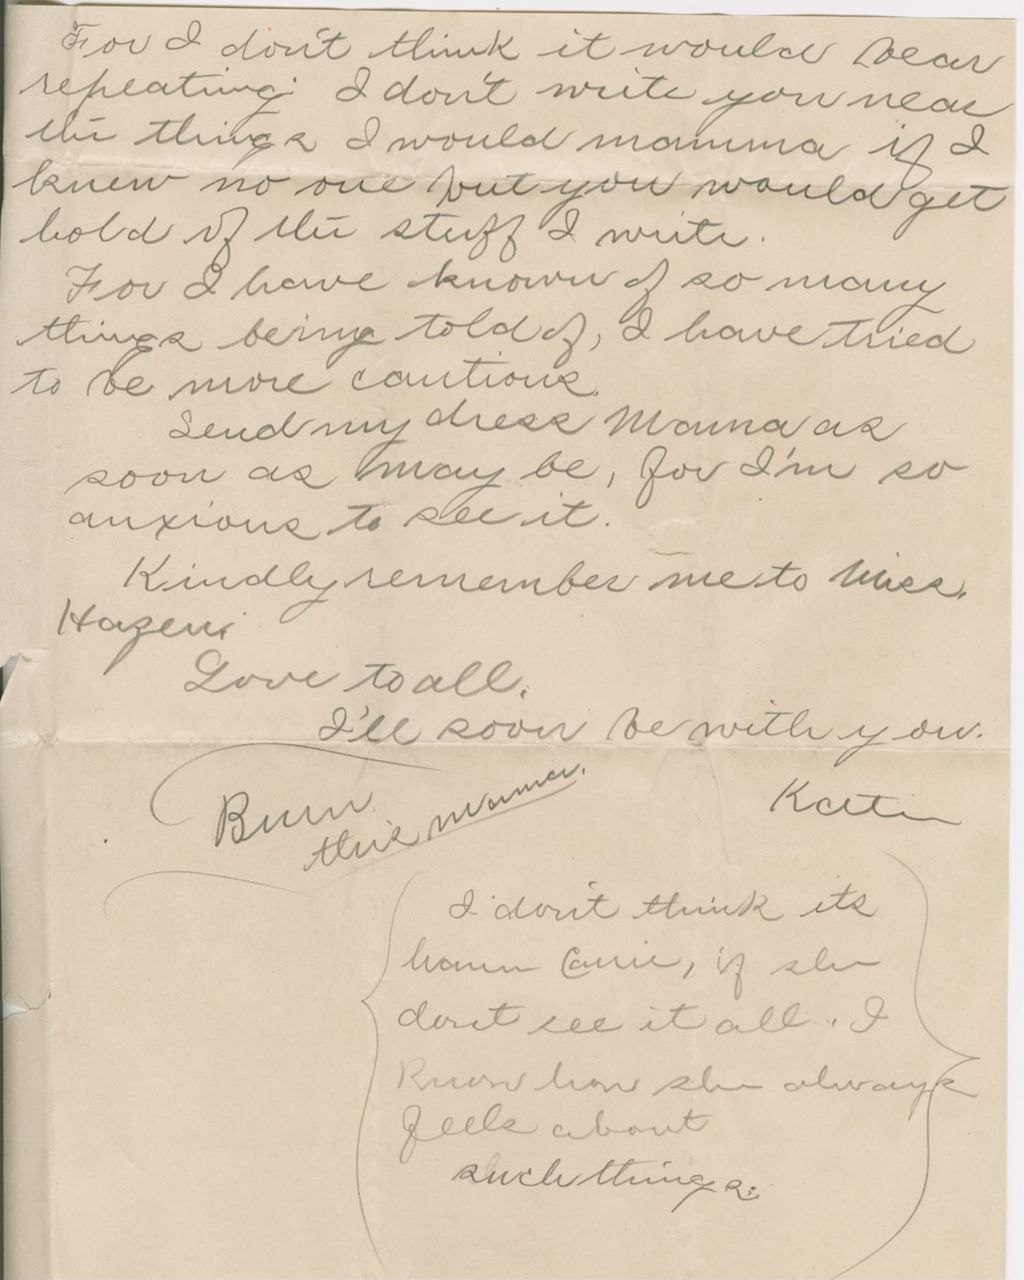 For I don't think it would bear
repeating. I don't write you near
the things I would mamma if I
knew no one but you would get
hold of the stuff I write.
For I have known of so many
things being told of, I have tried
to be more cautious.
Send my dress Mama as
soon as may be, for I'm so
anxious to see it.
Kindly remember me to Miss.
Hazen.
Love to all.
I'll soon be with you.
Katie
Burn
this Mamma.
I don't think its
harm Carrie, if she
dont see it all. I
Know how she always
feels about
such things.